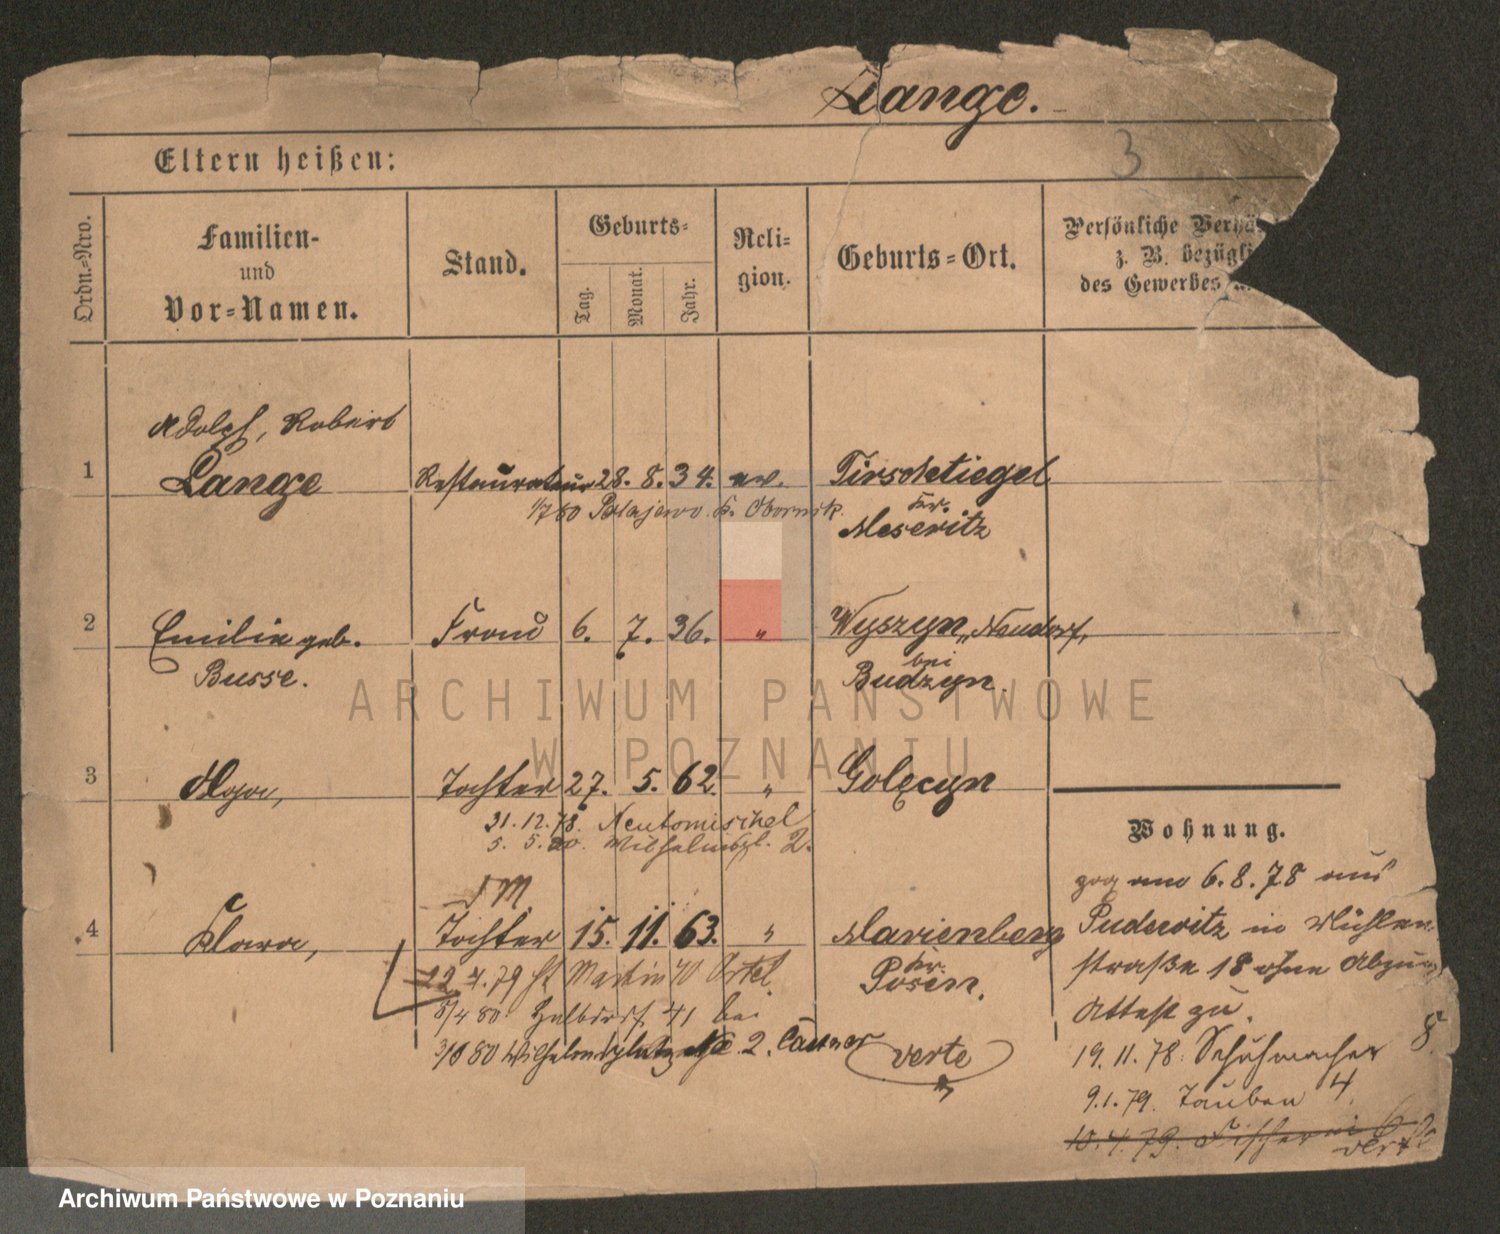 Lange.
3
Eltern heißen:
Ordn.-Nro.
Familien-
und
Vor-Namen.
Stand.
Geburts-
Tag.
Monat.
Jahr.
Reli-
gion.
Geburts-Ort.
Persönliche Verhä
z. B. bezügli
des Gewerbes
Adolf, Robert
1 Lange Restaurateur 28. 8. 34. ev. Tirschtiegel
1/7 80 Polajewo Kr. Obornik. Kr.
Meseritz
2 Emilie geb. Frau 6. 7. 36. " Wyszyn, Neudorf,
Busse. bei
Budzyn.
ARCHIWUM PAŃSTWOWE
W POZNANIU
3 Olga, Tochter 27. 5. 62. " Golęcyn
21.12.78. Neutomischel
5. 5. 80. Wilhelmspl. 2.
4 Klara, Tochter 15. 11. 63. " Marienberg
Kr.
Posen.
22 4.79 St Martin 70
8/4 80 Halbdorf 41 bei
80 Wilhelmsplatz No 2.
verte
Wohnung.
zog am 6.8.78 aus
Pudewitz in Mühlen-
straße 18 ohne Abzugs
Attest zu.
19.11.78. Schuhmacher 8.
9.1.79. Tauben 4.
10.4.79. Fischerei
vert
Archiwum Państwowe w Poznaniu